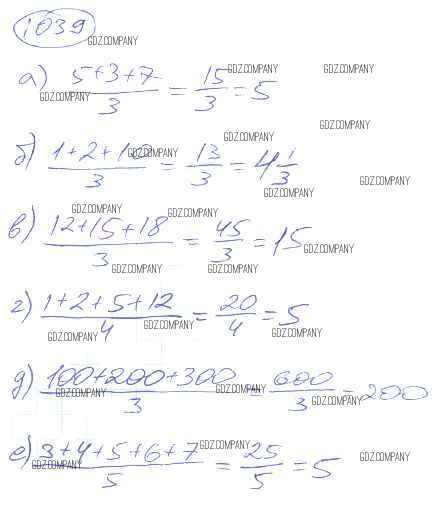 1039
GDZ.COMPANY
а) (5+3+7)/3 = 15/3 = 5
GDZ.COMPANY GDZ.COMPANY GDZ.COMPANY
GDZ.COMPANY GDZ.COMPANY
б) (1+2+10)/3 = 13/3 = 4 1/3
GDZ.COMPANY GDZ.COMPANY GDZ.COMPANY
GDZ.COMPANY GDZ.COMPANY
в) (12+15+18)/3 = 45/3 = 15
GDZ.COMPANY
GDZ.COMPANY GDZ.COMPANY
г) (1+2+5+12)/4 = 20/4 = 5
GDZ.COMPANY GDZ.COMPANY GDZ.COMPANY
д) (100+200+300)/3 = 600/3 = 200
GDZ.COMPANY GDZ.COMPANY GDZ.COMPANY
е) (3+4+5+6+7)/5 = 25/5 = 5
GDZ.COMPANY GDZ.COMPANY GDZ.COMPANY